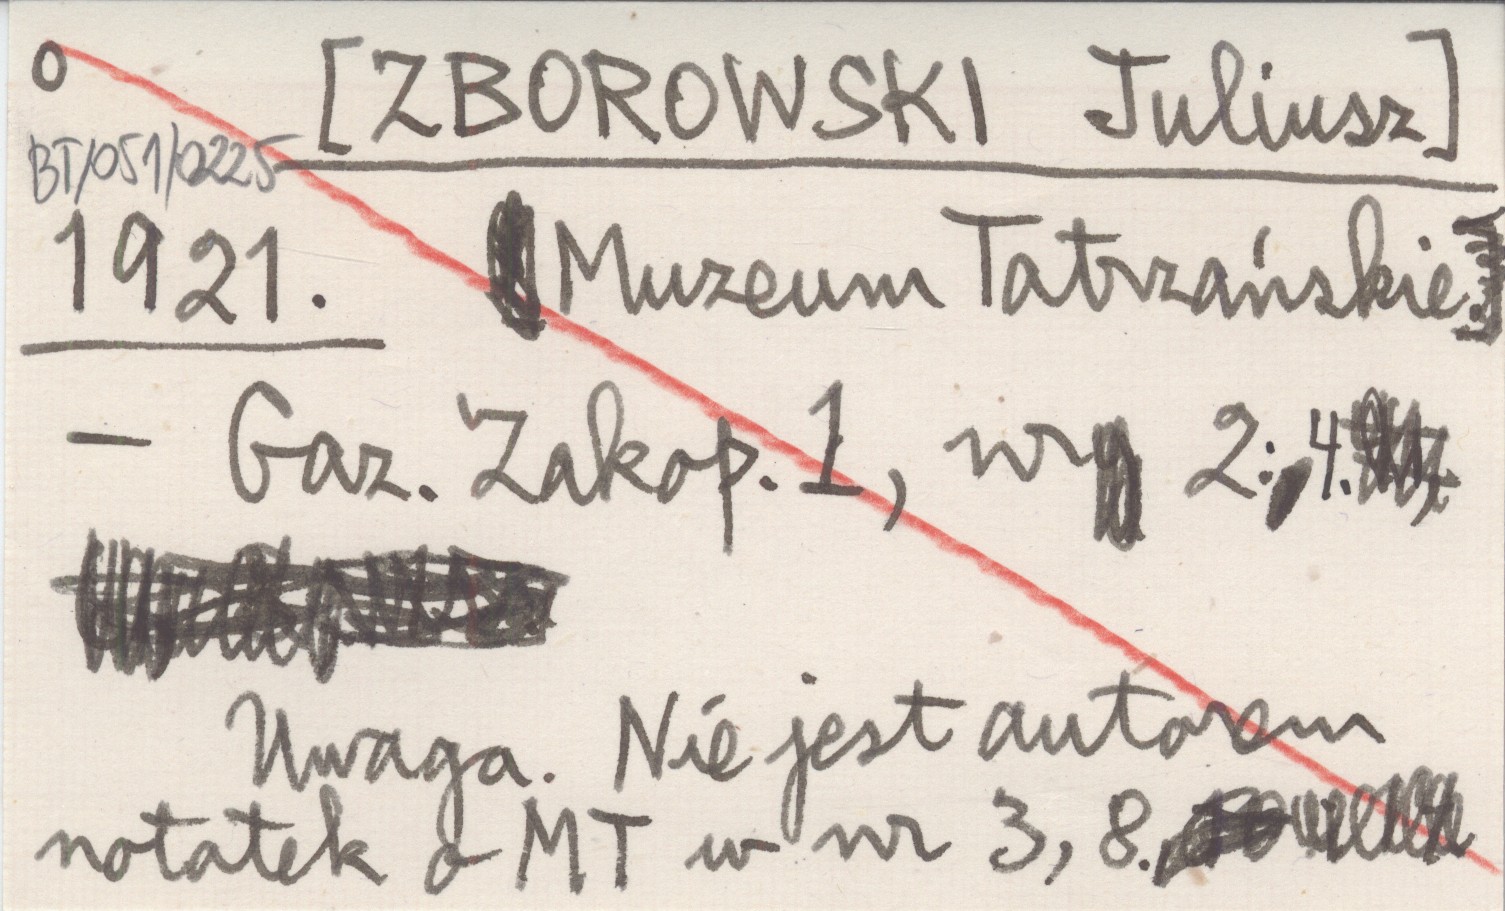 o [ZBOROWSKI Juliusz]
BT/051/0225
1921. Muzeum Tatrzańskie
— Gaz. Zakop. 1, nr 2:, 4.
Uwaga. Nie jest autorem
notatek o MT w nr 3, 8.